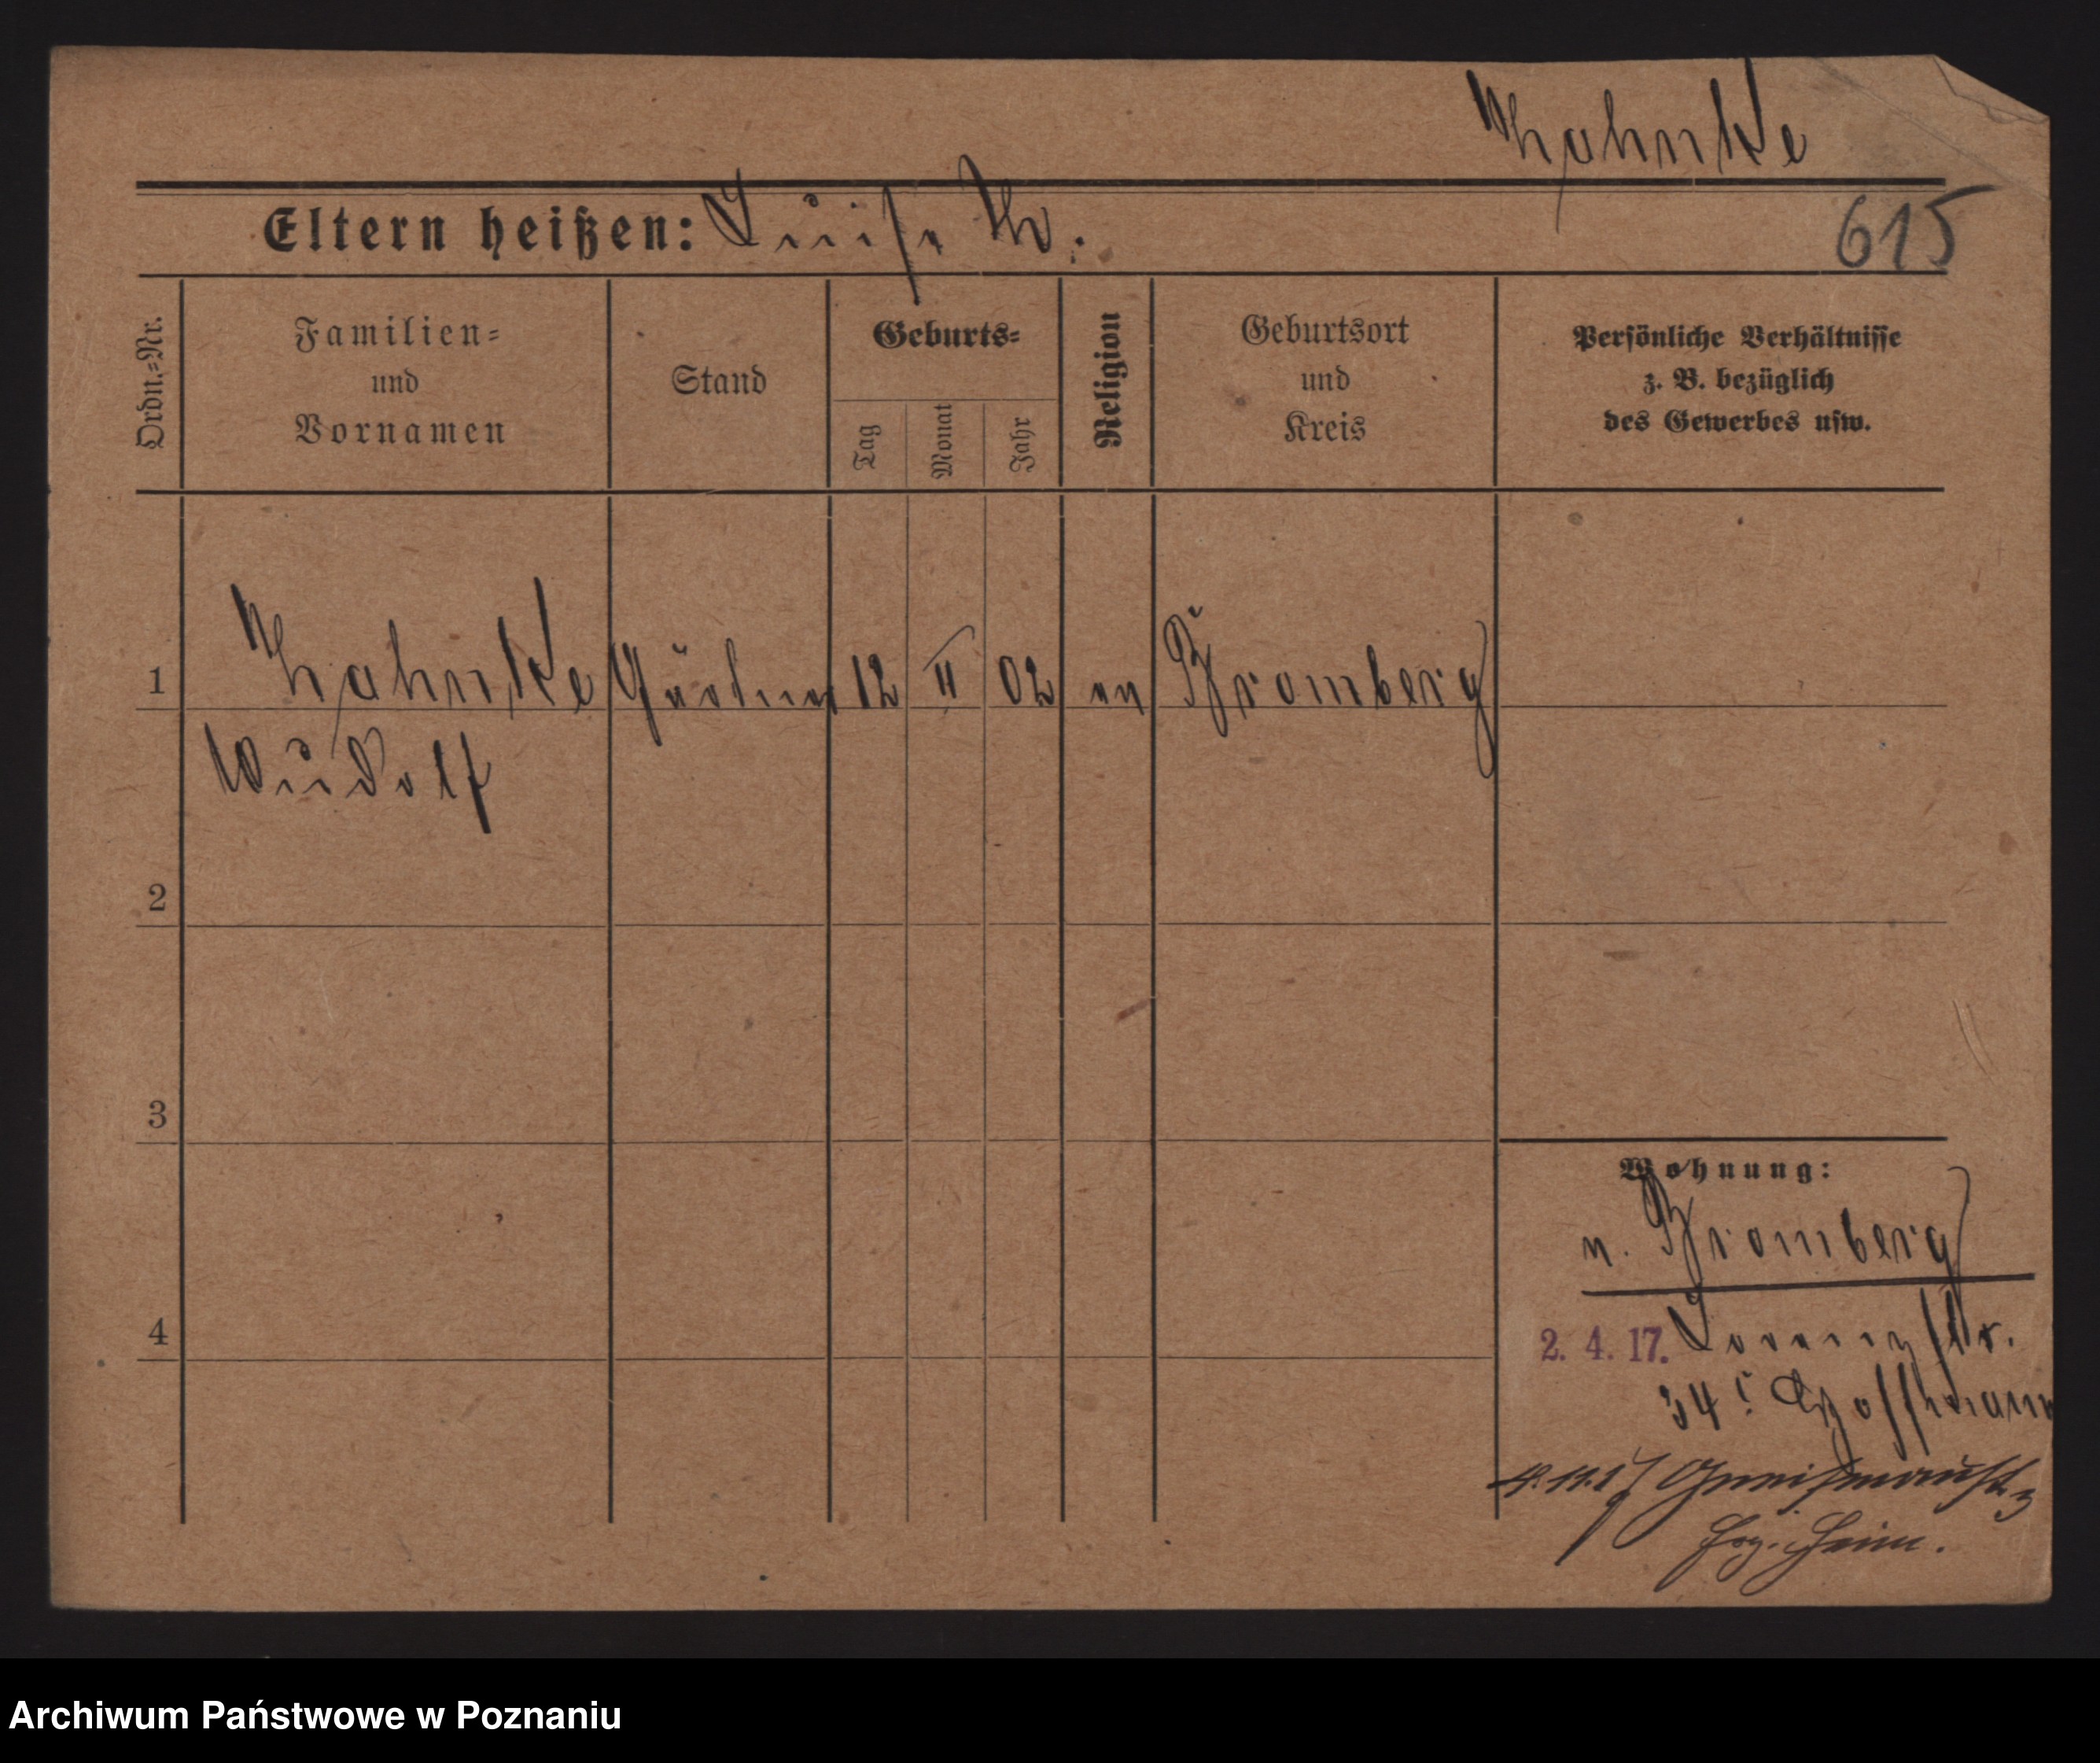 Hahnke
Eltern heißen: Luise H.
615
Ordn.-Nr.
Familien-
und
Vornamen
Stand
Geburts-
Tag
Monat
Jahr
Religion
Geburtsort
und
Kreis
Persönliche Verhältnisse
z. B. bezüglich
des Gewerbes usw.
1
Hahnke
12 II 02
ev
Bromberg
Rudolf
2
3
4
Wohnung:
v. Bromberg
2. 4. 17.
34 Hoffmann
4.11.17 Gneisenaustr. 3
Heim.
Archiwum Państwowe w Poznaniu